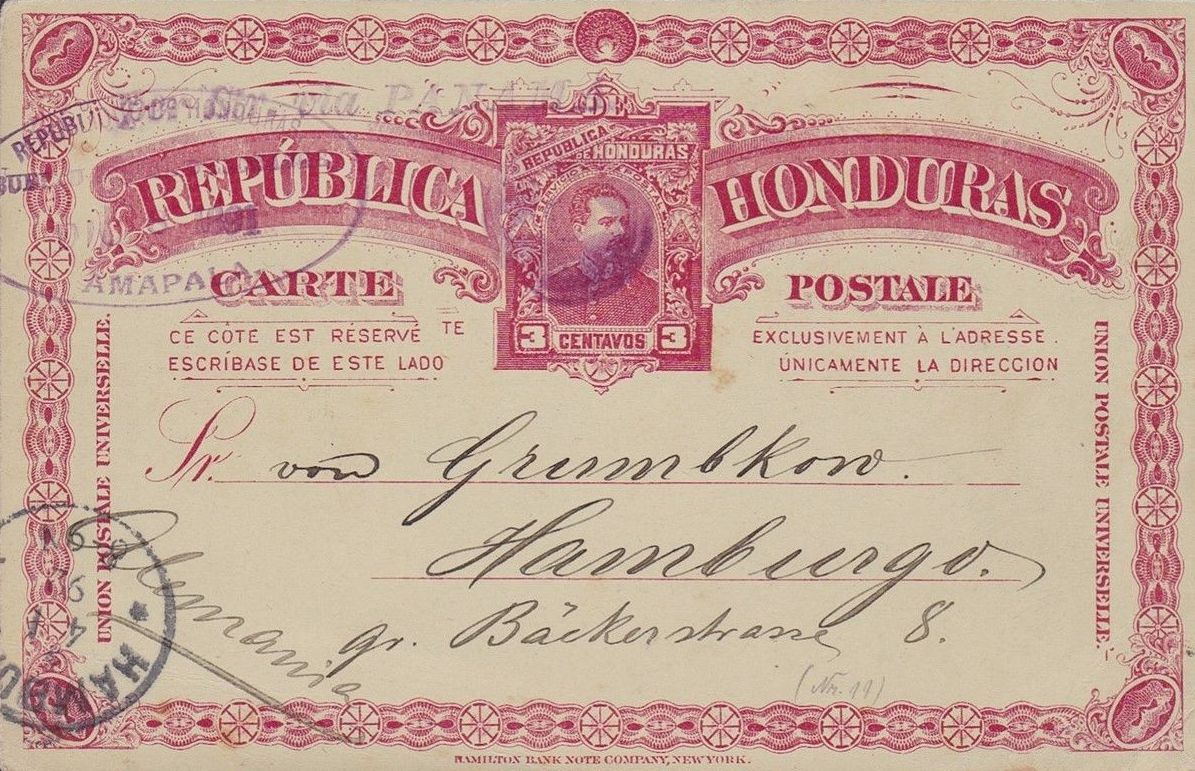 por Str. via PANAMA
DE
REPÚBLICA HONDURAS
REPUBLICA
DE HONDURAS
SERVICIO POSTAL
3 CENTAVOS 3
CARTE POSTALE
CE CÔTE EST RÉSERVÉ TE EXCLUSIVEMENT À L'ADRESSE.
ESCRÍBASE DE ESTE LADO ÚNICAMENTE LA DIRECCION
REPUBLI
AMAPALA
UNION POSTALE UNIVERSELLE.
UNION POSTALE UNIVERSELLE.
Sr. von Grumbkow.
Hamburgo.
gr. Bäckerstrasse 8.
Alemania
(Nr. 11)
HAMBU
HAMILTON BANK NOTE COMPANY, NEW YORK.